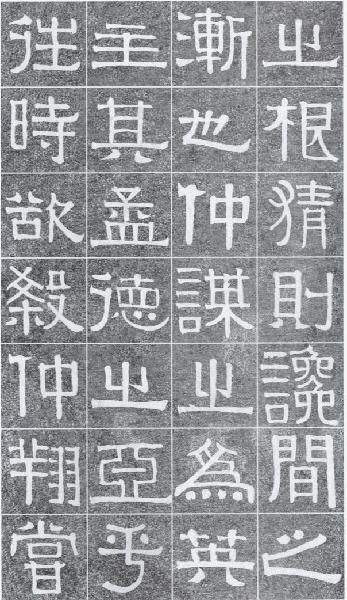 之根猜則讒間之
漸也仲謀之為英
主其孟德之亞乎
往時欲殺仲翔嘗